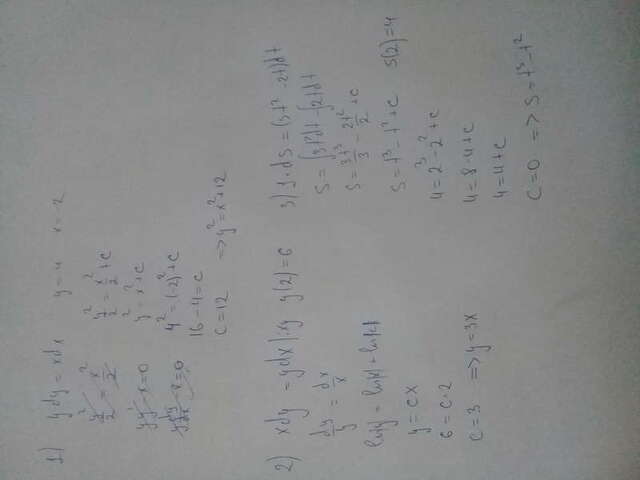 1) ydy = xdx  y = 4  x = -2
y²/2 = x²/2
yy' - x = 0
y dy/dx - x = 0
y²/2 = x²/2 + c
y² = x² + c
4² = (-2)² + c
16 - 4 = c
c = 12 => y² = x² + 12
2) xdy = ydx |: xy  y(2) = 6
dy/y = dx/x
ln|y| = ln|x| + ln|c|
y = cx
6 = c·2
c = 3 => y = 3x
3) 1·ds = (3t² - 2t)dt
s = ∫3t²dt - ∫2tdt
s = 3t³/3 - 2t²/2 + c
s = t³ - t² + c  s(2) = 4
4 = 2³ - 2² + c
4 = 8 - 4 + c
4 = 4 + c
c = 0 => s = t³ - t²